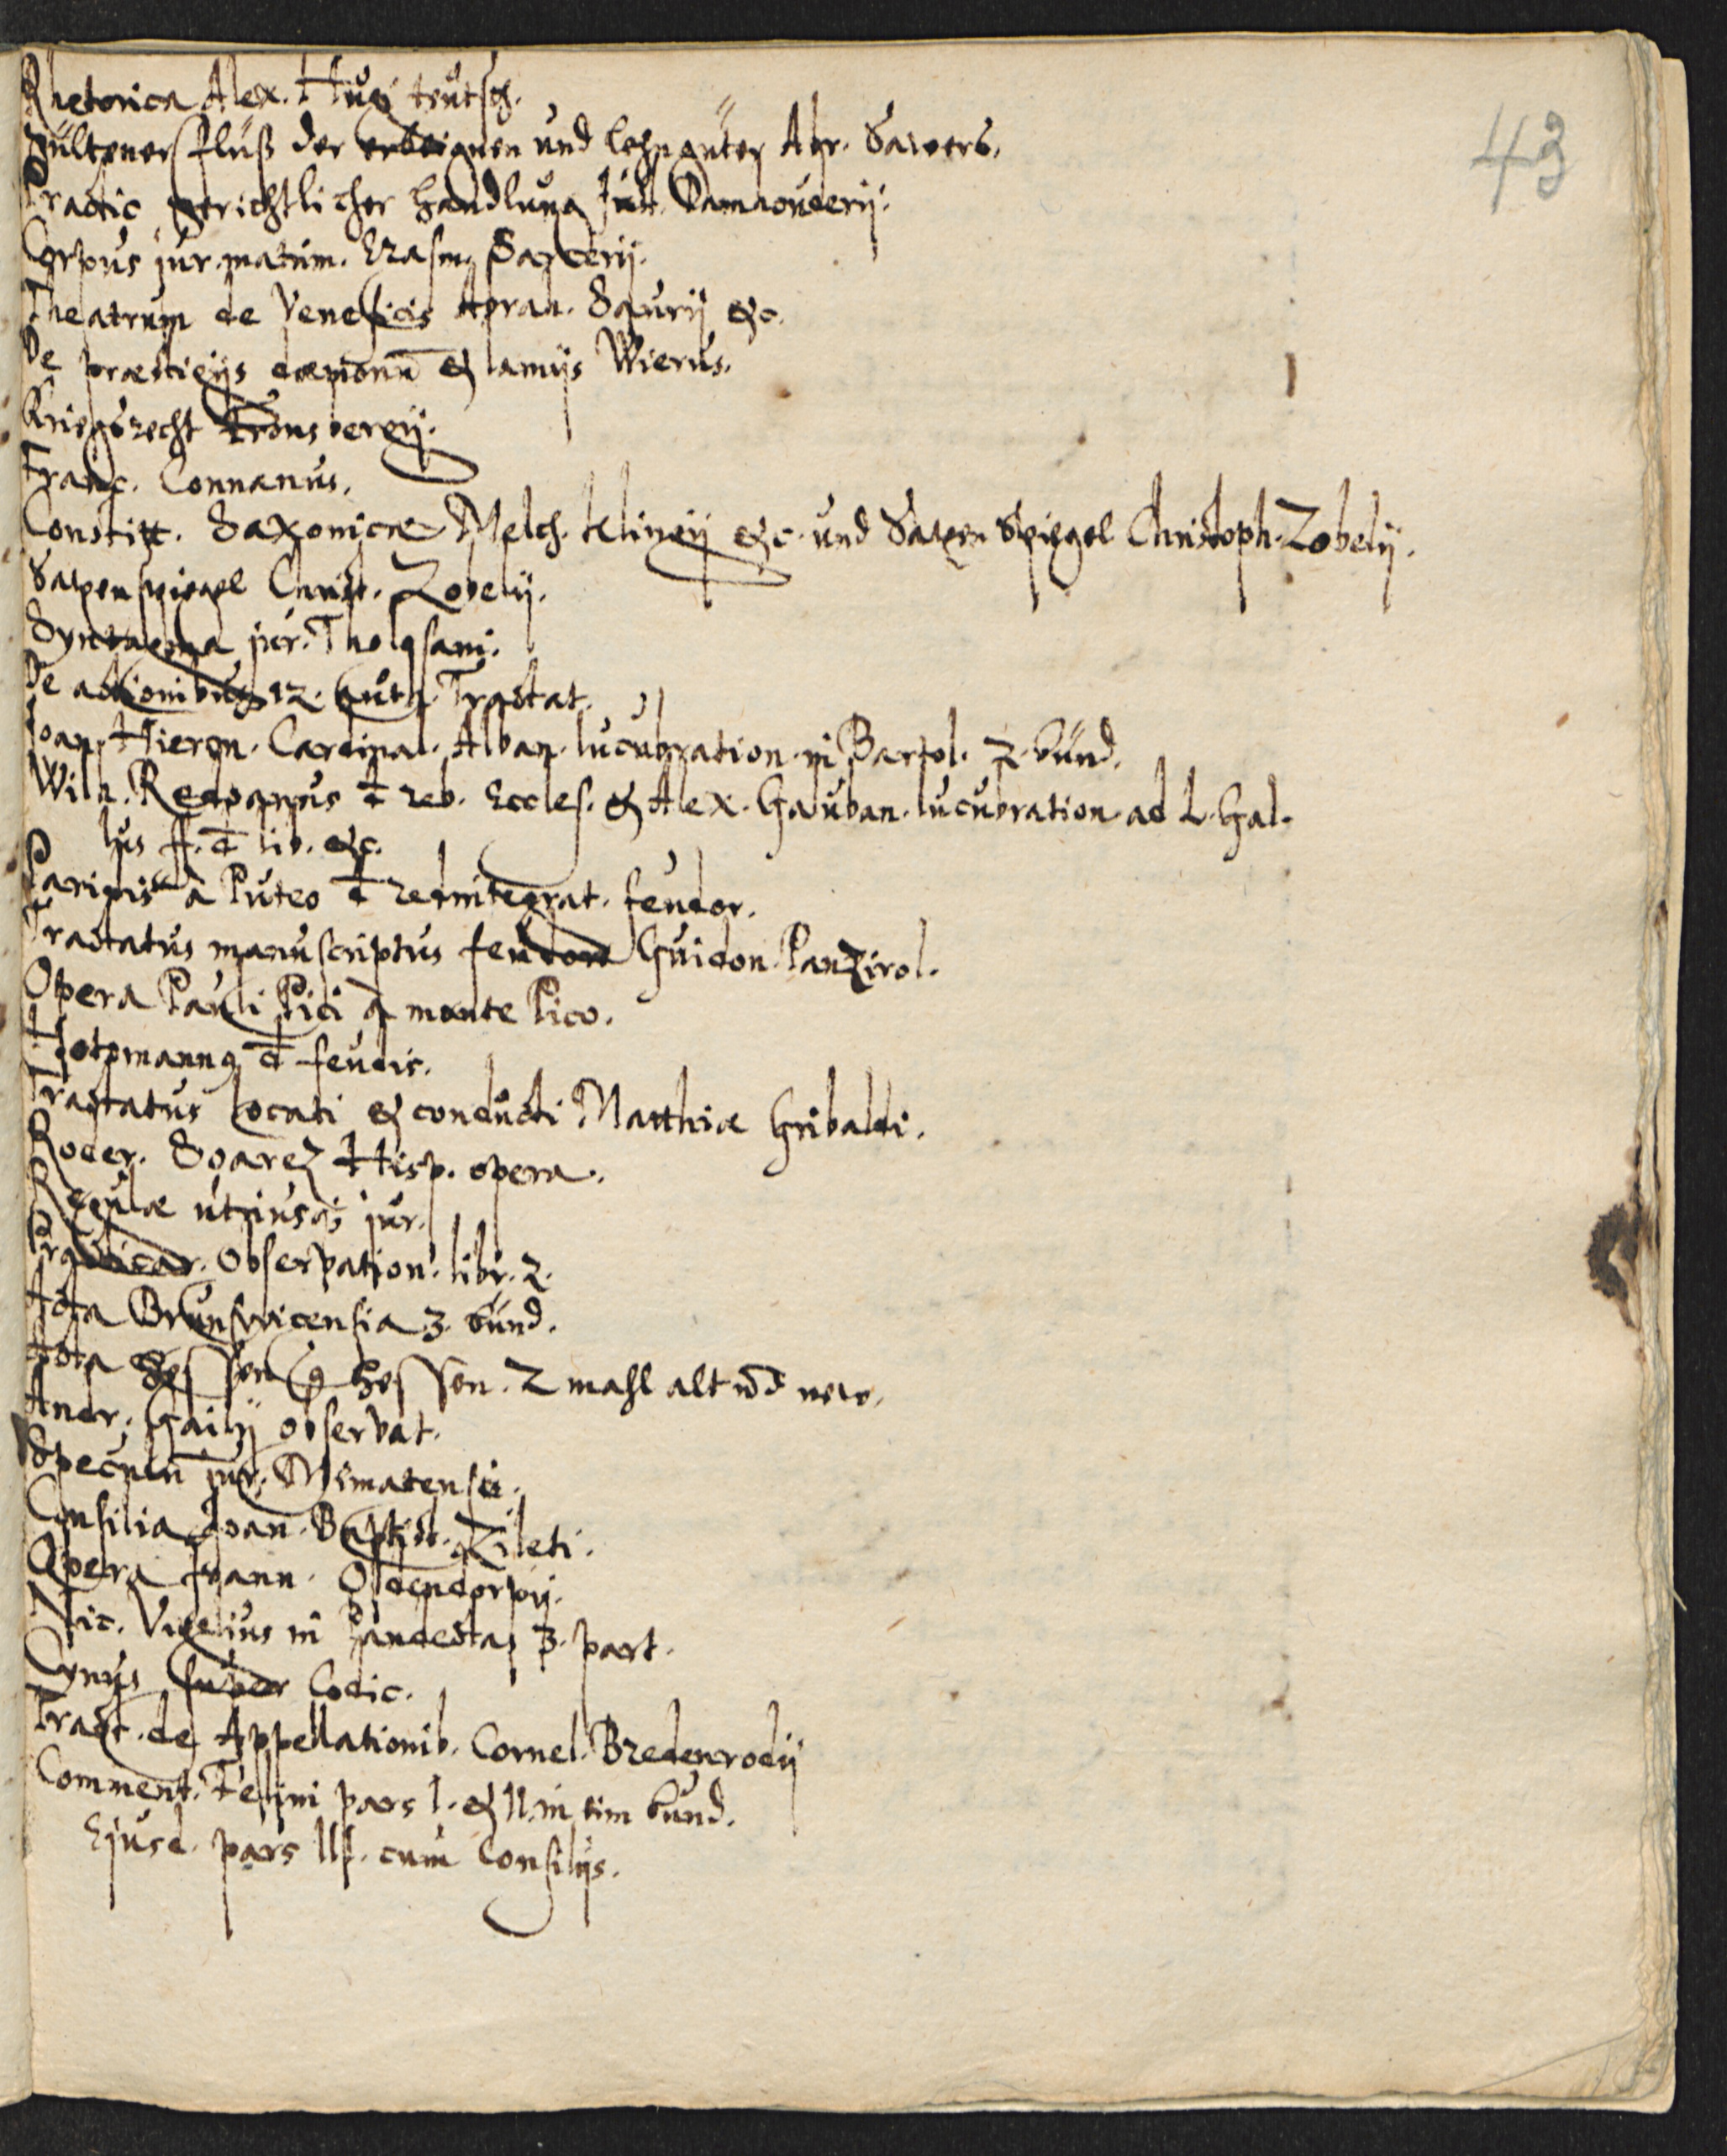 43
Rhetorica Alex. Hugi teutsch.
Gültenersfluß der erbeignen und lehngüter Abr. Sawers.
Practic gerichtlicher handlung Jud. Damhouderij.
Corpus jur. matrim. Erasm. Sarcerij.
Theatrum de Veneficis Abrah. Saurij &c.
De praestigijs daemonū & lamijs Wierus.
Kriegsrecht Fronsbergij.
Franc. Connanus.
Constitt. Saxonicae Melch. Klingij &c. und Saxen Spiegel Christoph. Zobelij.
Saxenspiegel Christ. Zobelij.
Syntagma jur. Tholosani.
De actionibus 12. auth. Tractat.
Joan. Hieron. Cardinal. Alban. lucubration. in Bartol. 2. bünd.
Wilh. Redoanus d reb. Eccles. & Alex. Gauban. lucubration. ad L. Gal-
lus ff. d lib. &c.
Paridis à Puteo d redintegrat. feudor.
Tractatus manuscriptus feudor Guidon. Panzirol.
Opera Pauli Pici à monte Pico.
Hotomannꝰ d feudis.
Tractatus locati & conducti Matthiæ Gribaldi.
Roder. Soarez Hisp. opera.
Regulæ utriusq; jur.
Practicar. Observation. libr. 2.
Acta Brunsvicensia 3. bünd.
Acta Hessen Hessen. 2 mahl alt und new.
Andr. Gailij observat.
Speculū jur. Mimatensis.
Consilia Joan. Baptist. Zileti.
Opera Joann. Oldendorpij.
Nic. Vigelius in Pandectas 3. part.
Cynus super Codic.
Tract. de Appellationib. Cornel. Brederodij
Comment. Felini pars I. & II. in eim bund.
Ejusd. pars III. cum Consilijs.